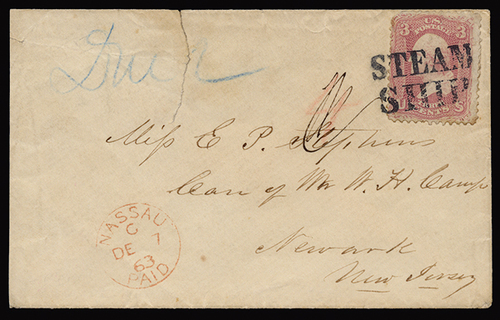 Due 2
3 U.S. 3
STEAM
SHIP
Miss E P. Stephens
Care of Mr W. H. Camp
Newark
New Jersey
NASSAU
C
DE 7
63
PAID